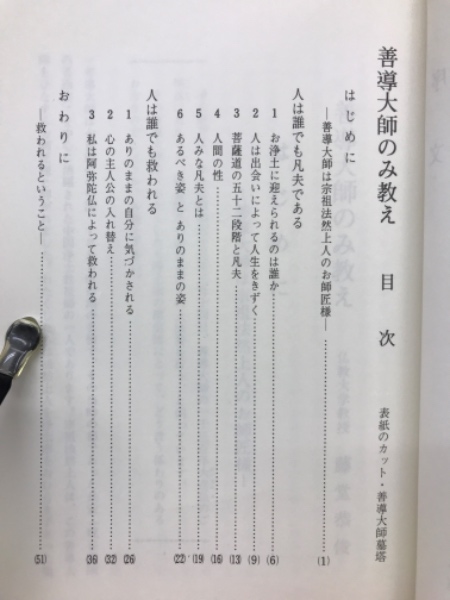 善導大師のみ教え 目次
表紙のカット・善導大師墓塔
はじめに
―善導大師は宗祖法然上人のお師匠様―……(1)
人は誰でも凡夫である
1 お浄土に迎えられるのは誰か……(6)
2 人は出会いによって人生をきずく……(9)
3 菩薩道の五十二段階と凡夫……(13)
4 人間の性……(16)
5 人みな凡夫とは……(19)
6 あるべき姿 と ありのままの姿……(22)
人は誰でも救われる
1 ありのままの自分に気づかされる……(26)
2 心の主人公の入れ替え……(32)
3 私は阿弥陀仏によって救われる……(36)
おわりに
―救われるということ―……(51)